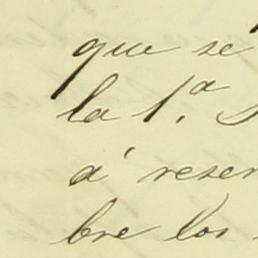 que se
la 1.ª
á reser
bre los